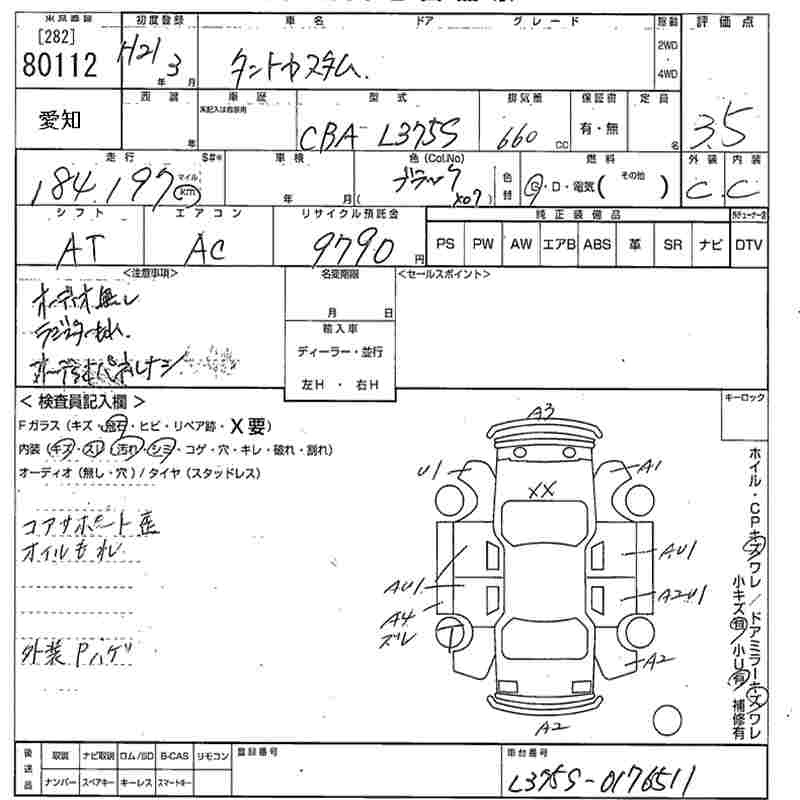 東京登録 初度登録 車名 ドア グレード 駆動 評価点
[282]
80112 H21 3 年 月 タントカスタム 2WD 4WD 3.5
愛知 年 車歴 型式 排気量 保証書 定員
CBA-L375S 660 CC 有・無 名
走行 車検 色(Col.No) 色替 燃料 外装 内装
184,197 マイル km 年 月 ブラック X07 G・D・電気( その他 ) C C
シフト エアコン リサイクル預託金 純正装備品
AT AC 9790円 PS PW AW エアB ABS 革 SR ナビ DTV
<注意事項> 名変期限 <セールスポイント>
オーディオ無し 月 日
輸入車
オーディオパネルナシ ディーラー・並行
左H ・ 右H
< 検査員記入欄 > キーロック
Fガラス (キズ・飛石・ヒビ・リペア跡・X要)
内装 (キズ・スレ・汚れ・シミ・コゲ・穴・キレ・破れ・割れ)
オーディオ (無し・穴) / タイヤ (スタッドレス)
コアサポート歪
オイルもれ
外装Pハゲ
A3
U1 A1
XX
AU1
AU1 A2U1
A4
ズレ
A2
A2
ホイル・CPキズワレ/ドアミラーキズワレ
小キズ有 小U有 補修有
後送品 取説 ナビ取説 ロム/SD B-CAS リモコン 登録番号 車台番号
ナンバー スペアキー キーレス スマートキー L375S-0176511